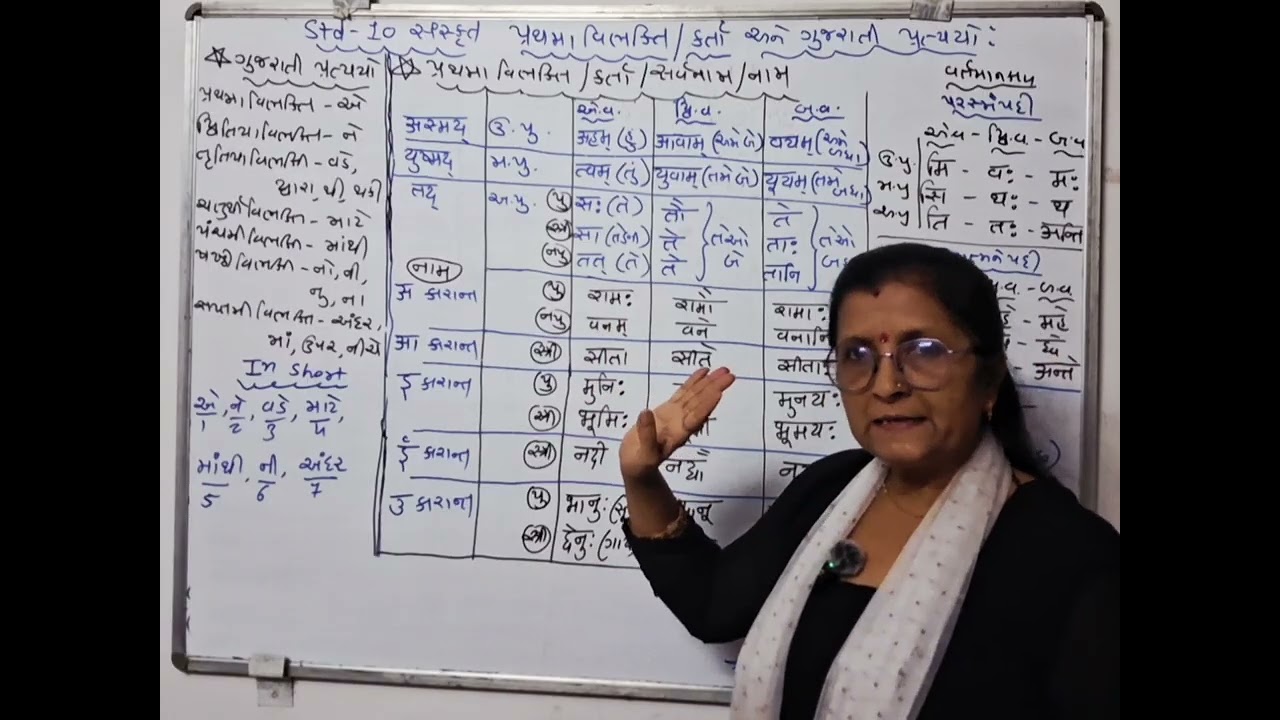 Std-10 સંસ્કૃત પ્રથમા વિભક્તિ/કર્તા અને ગુજરાતી પ્રત્યયો:
ગુજરાતી પ્રત્યયો
પ્રથમા વિભક્તિ - એ
દ્વિતિયા વિભક્તિ - ને
તૃતિયા વિભક્તિ - વડે,
દ્વારા, થી, થકી
ચતુર્થી વિભક્તિ - માટે
પંચમી વિભક્તિ - માંથી
ષષ્ઠી વિભક્તિ - નો, ની,
નુ, ના
સપ્તમી વિભક્તિ - અંદર,
માં, ઉપર, નીચે
In Short
એ, ને, વડે, માટે,
1 2 3 4
માંથી, ની, અંદર
5 6 7
પ્રથમા વિભક્તિ / કર્તા / સર્વનામ / નામ
એ.વ. દ્વિ.વ. બ.વ.
अस्मद् ઉ.પુ. अहम् (હું) आवाम् (અમે બે) वयम् (અમે બધા)
युष्मद् મ.પુ. त्वम् (તું) युवाम् (તમે બે) यूयम् (તમે બધા)
तद् અ.પુ. પુ सः (તે) तौ ते
સ્ત્રી सा ते તેઓ બે ताः તેઓ બધા
નપુ तत् (તે) ते तानि
નામ
અ કારાન્ત પુ रामः रामौ रामाः
નપુ वनम् वने वनानि
આ કારાન્ત સ્ત્રી सीता सीते सीताः
ઇ કારાન્ત પુ मुनिः मुनयः
સ્ત્રી भूमिः भूमयः
ઈ કારાન્ત સ્ત્રી नदी नद्यौ
ઉ કારાન્ત પુ भानुः
સ્ત્રી धेनुः
વર્તમાનકાળ
પરસ્મૈપદી
એ.વ - દ્વિ.વ. - બ.વ
ઉ.પુ. मि - वः - मः
મ.પુ सि - थः - थ
અ.પુ ति - तः - अन्ति
બ.વ.
- महे
- ध्वे
- अन्ते